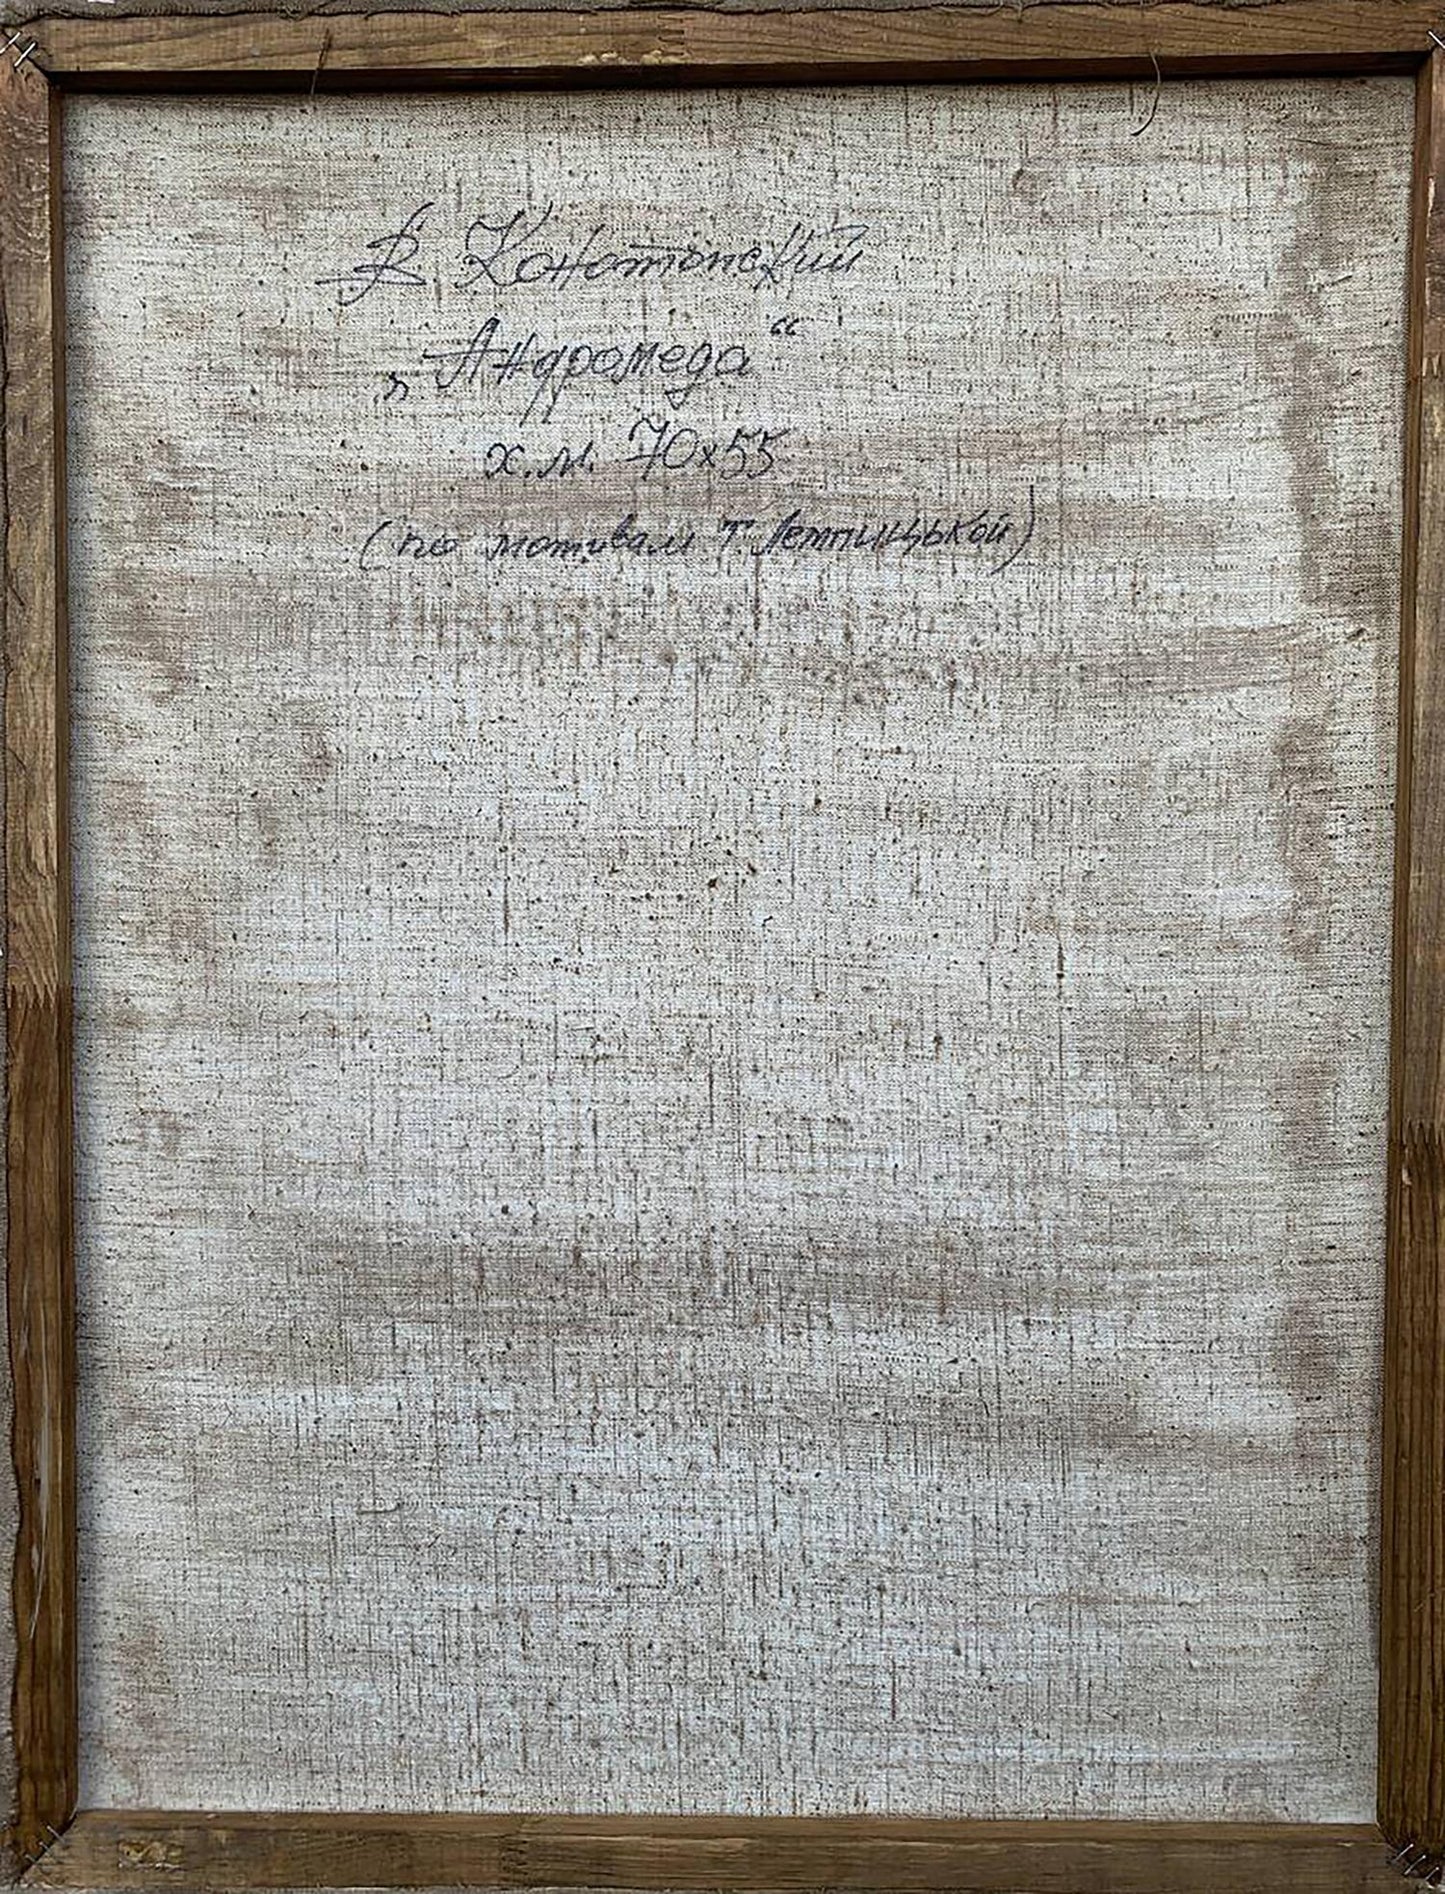 В. Конотопский
„Андромеда“
х.м. 70х55
(по мотивам Т. Лемпицькой)